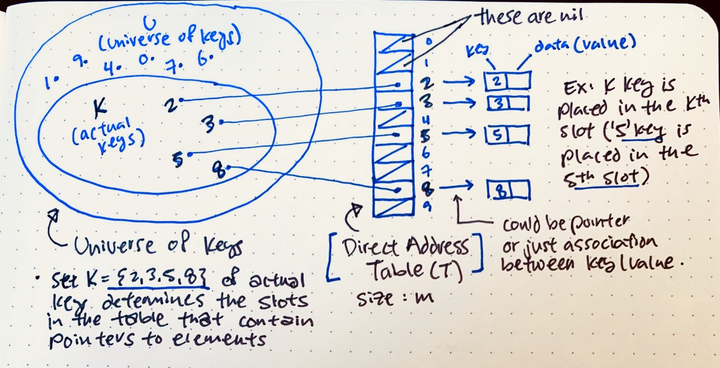 U
(Universe of keys)
1. 9. 4. 0. 7. 6.
K
(actual
keys)
2.
3.
5
8.
Universe of Keys
• Set K = {2,3,5,8} of actual
key determines the slots
in the table that contain
pointers to elements
these are nil
0
1
2
3
4
5
6
7
8
9
key
data (value)
2
3
5
8
[Direct Address
Table (T)]
size : m
Ex: K key is
placed in the Kth
slot ('5' key is
placed in the
5th slot)
could be pointer
or just association
between key/value.